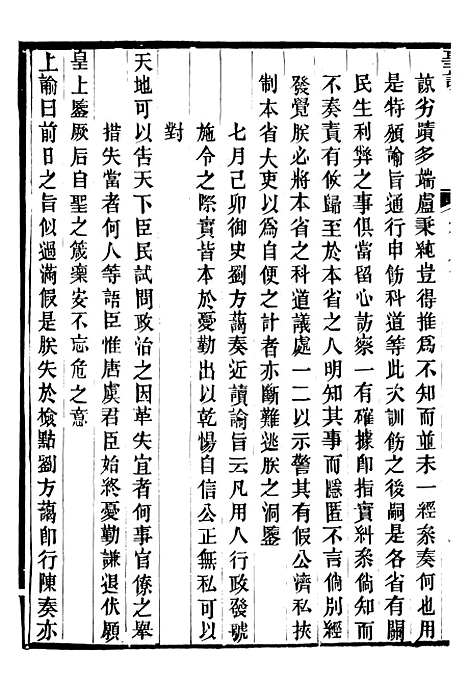 諒劣蹟多端盧秉純豈得推爲不知而並未一經叅奏何也用
是特頒諭旨通行申飭科道等此次訓飭之後嗣是各省有關
民生利弊之事俱當畱心訪察一有確據卽指實糾叅倘知而
不奏責有攸歸至於本省之人明知其事而隱匿不言倘別經
發覺朕必將本省之科道議處一二以示警其有假公濟私挾
制本省大吏以爲自便之計者亦斷難逃朕之洞鑒
七月己卯御史劉方藹奏近讀諭旨云凡用人行政發號
施令之際實皆本於憂勤出以乾惕自信公正無私可以
對
天地可以告天下臣民試問政治之因革失宜者何事官僚之舉
措失當者何人等語臣惟唐虞君臣始終憂勤謙退伏願
皇上鑒厥后自聖之箴稟安不忘危之意
上諭曰前日之旨似過滿假是朕失於檢點劉方藹卽行陳奏亦